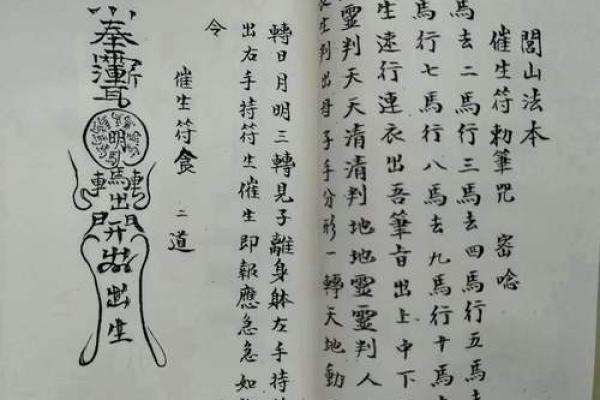 閭山法本
催生符勅筆咒 密唸
馬去二馬行三馬去四馬行五馬
馬行七馬行八馬去九馬行十馬
生速行連衣出吾筆旨出上中下
靈判天天清清判地地靈靈判人
生判出母子手分形一轉天地動
轉日月明三轉見子離身躰左手持
出右手持符生催生即報應急急如
令
催生符食 二道
奉
明
馬出
開
出生